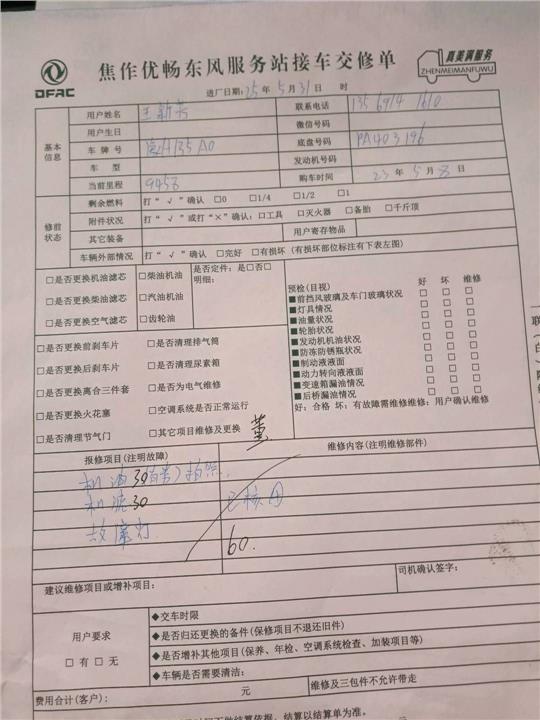 DFAC
焦作优畅东风服务站接车交修单
真美满服务
ZHENMEIMANFUWU
进厂日期:25年5月31日 时
基本信息
用户姓名 王新芳 联系电话 135 6914 1610
用户生日 微信号码
车牌号 135A0 底盘号码 PA403196
车型 发动机号码
当前里程 9453 购车时间 23年5月8日
修前状态
剩余燃料 打“√”确认 □0 □1/4 □1/2 □1
附件状况 打“√”或打“×”确认:□工具 □灭火器 □备胎 □千斤顶
其它装备 用户寄存物品
车辆外部情况 打“√”确认 □完好 □有损坏(有损坏部位标注有下表左图)
□是否更换机油滤芯 □柴油机油 是否定件:是□否□
明细:
□是否更换柴油滤芯 □汽油机油
□是否更换空气滤芯 □齿轮油
预检(目视) 好 坏 维修
■前挡风玻璃及车门玻璃状况 □ □ □
■灯具情况 □ □ □
■油量状况 □ □ □
■轮胎状况 □ □ □
■发动机机油状况 □ □ □
■防冻防锈瓶状况 □ □ □
■制动液液面 □ □ □
■动力转向液液面 □ □ □
■变速箱漏油情况 □ □ □
■后桥漏油情况 □ □ □
好:合格 坏:有故障需维修维修:用户确认维修
□是否更换前刹车片 □是否清理排气筒
□是否更换后刹车片 □是否清理尿素箱
□是否更换离合三件套 □是否为电气维修
□是否更换火花塞 □空调系统是否正常运行
□是否清理节气门 □其它项目维修及更换
董
报修项目(注明故障) 维修内容(注明维修部件)
机油30
机滤30 已核
故障灯
60.
建议维修项目或增补项目: 司机确认签字:
用户要求
□有 □无
◆交车时限
◆是否归还更换的备件(保修项目不退还旧件)
◆是否增补其他项目(保养、年检、空调系统检查、加装项目等)
◆车辆是否需要清洁:
费用合计(客户): 元 维修及三包件不允许带走
结算依据。结算以结算单为准。